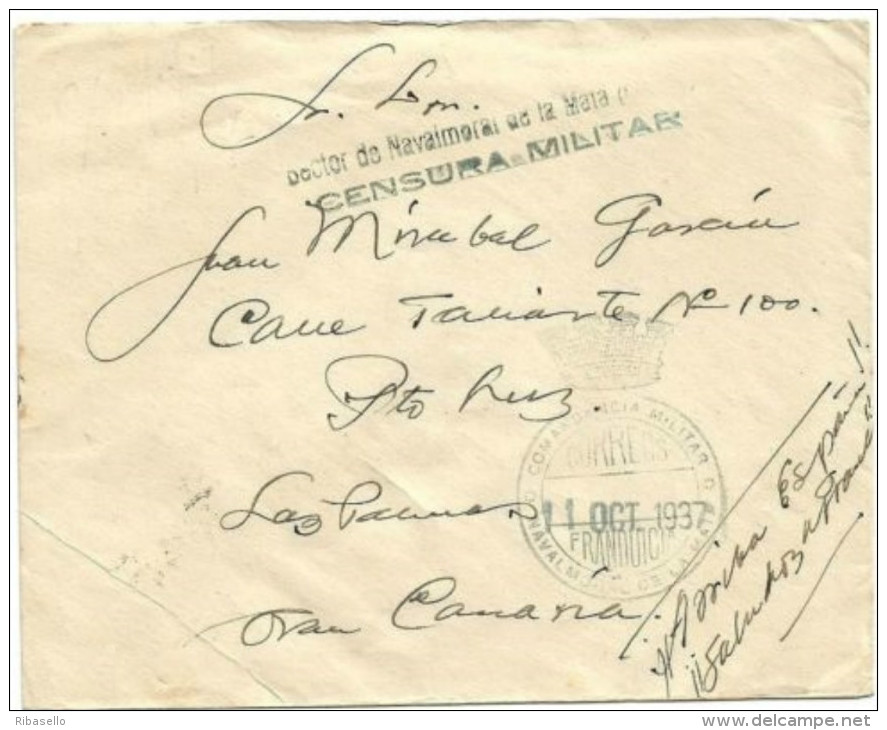 Sr. Don.
Sector de Navalmoral de la Mata (
CENSURA MILITAR
Juan Mirabal García
Calle Tariarte Nº 100.
Pto Luz
Las Palmas
Gran Canaria.
COMANDANCIA MILITAR
CORREOS
11 OCT. 1937
FRANQUICIA
NAVALMORAL DE LA MATA
¡¡Arriba España!!
¡¡Saludos a Franco!!
Ribasello
www.delcampe.net